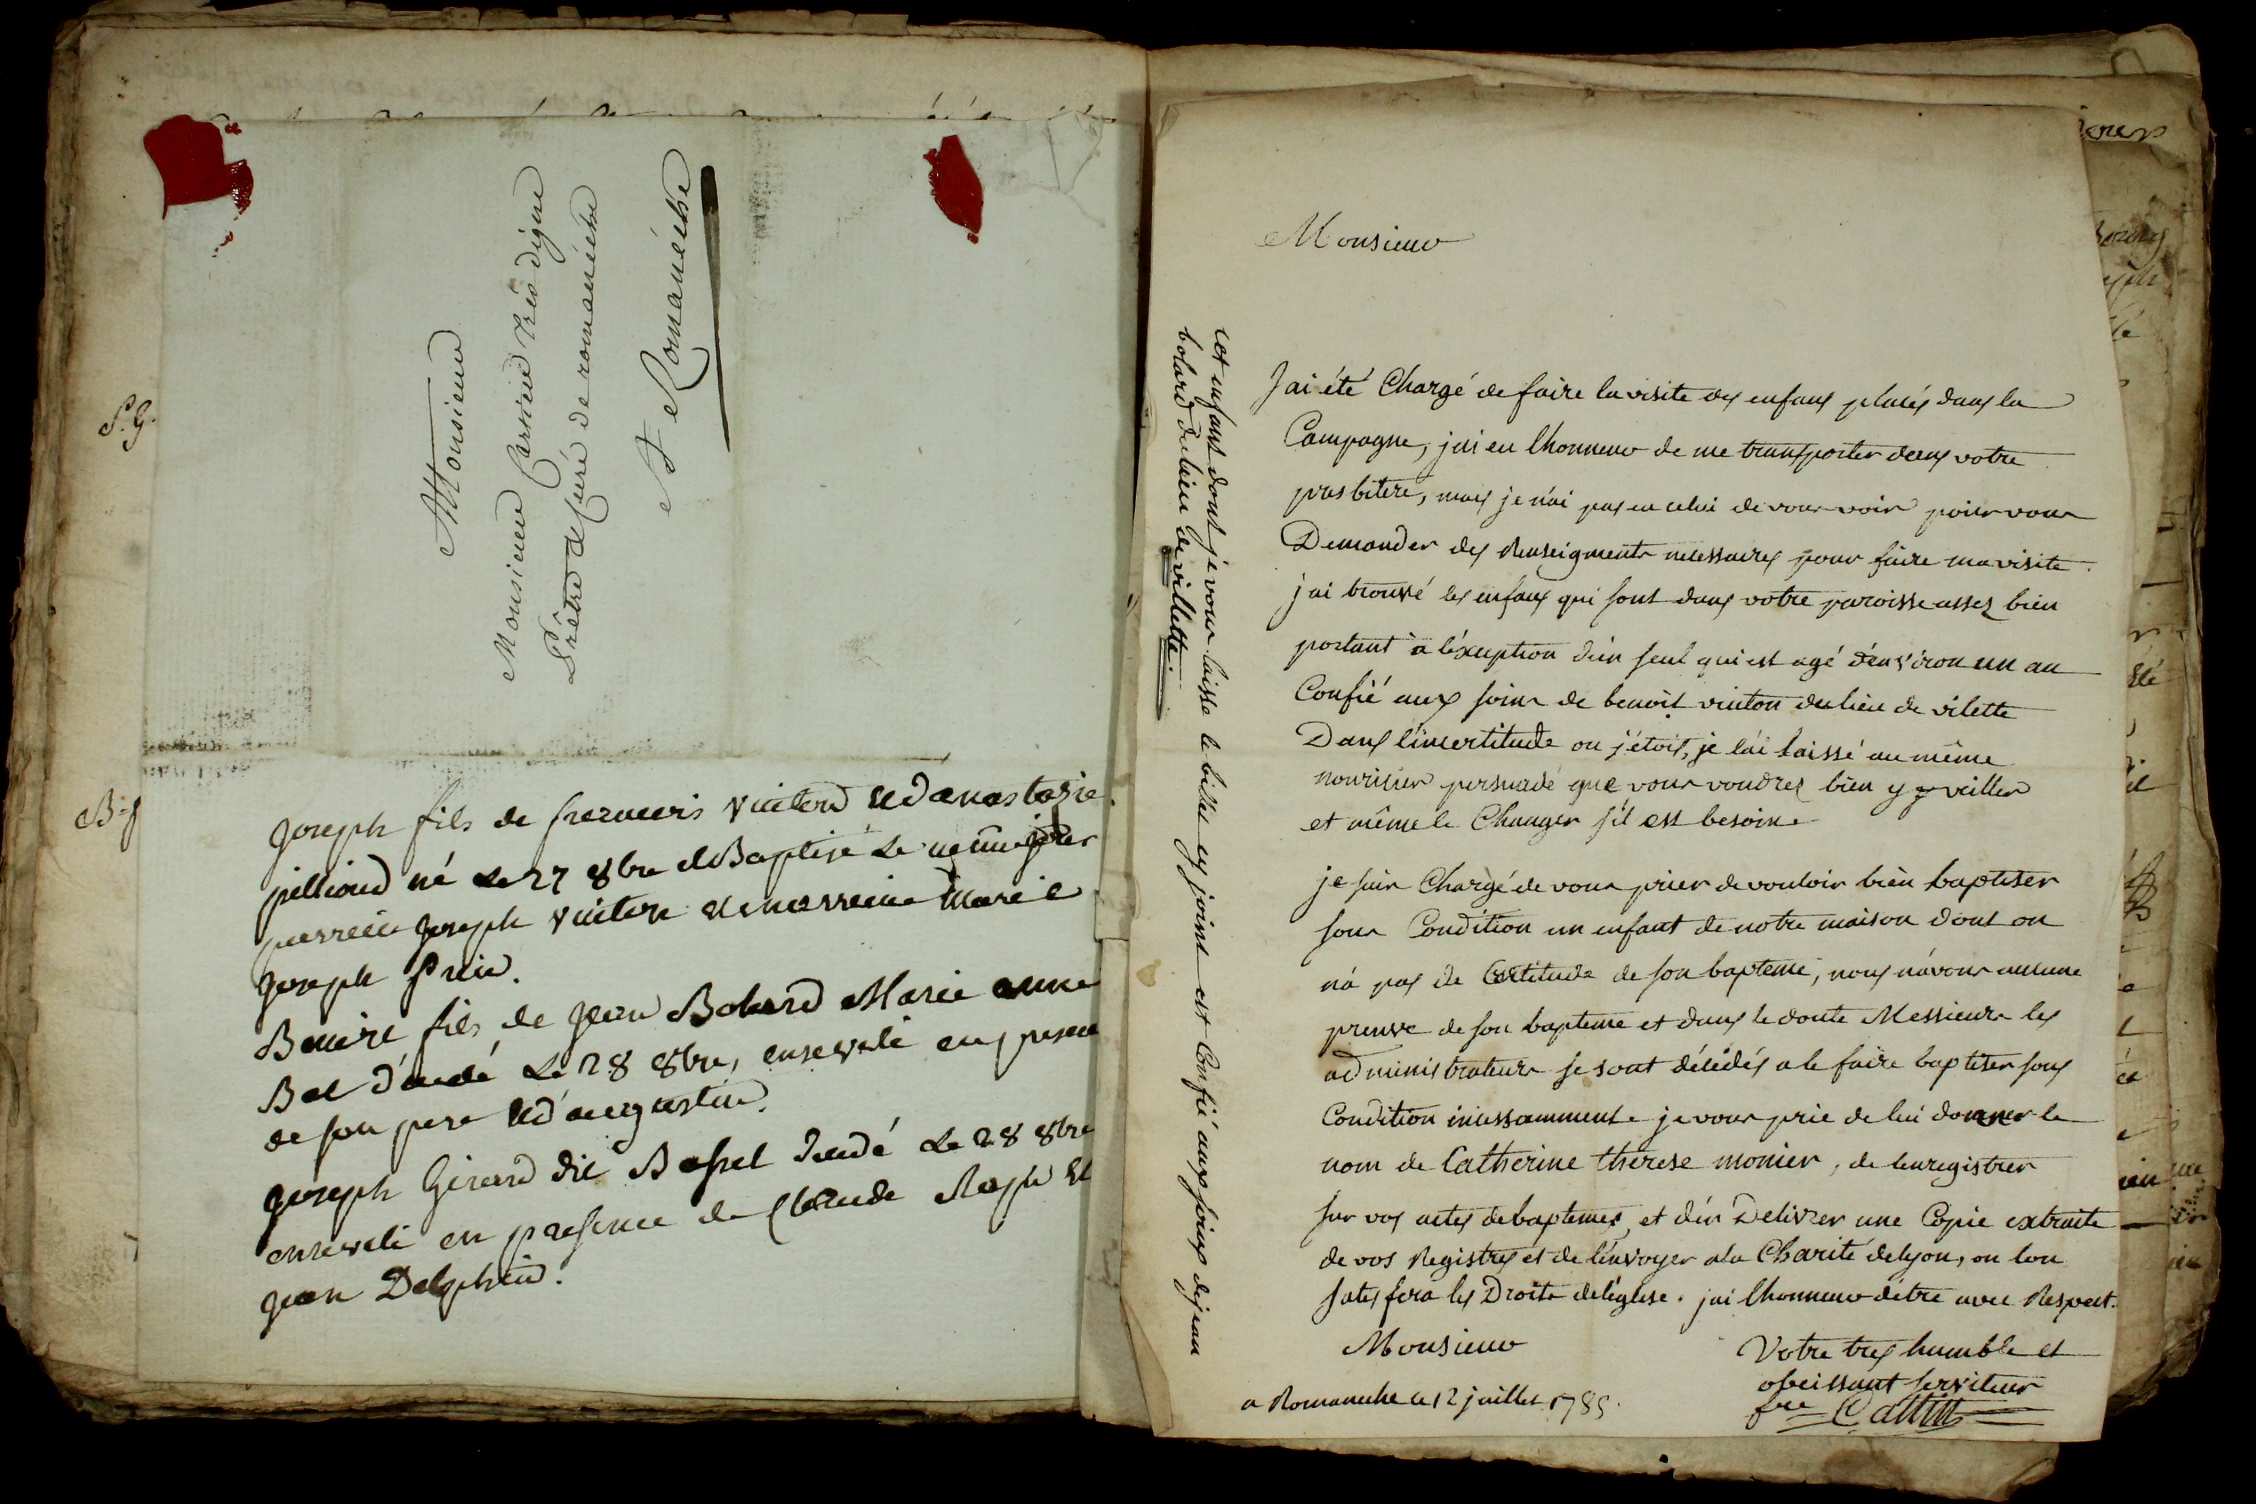 Monsieur
Monsieur Carrier très digne
Prêtre & Curé de romanêche
A Romanêche
S. G.
joseph fils de francois vuiton et d'anastazie
pillioud né le 27 8bre et Baptisé le même jour
parrein joseph vuiton et marreine Marie
joseph
fils de jean Bolard Marie anne
Bel décédé le 28 8bre, enseveli en presence
de son pere et d'augustin.
joseph Girard dit Bassel décédé le 28 8bre
enseveli en presence de Claude et
jean Delphin.
Monsieur
J'ai été Chargé de faire la visite des enfans placés dans la
Campagne, j'ai eu lhonneur de me transporter dans votre
presbitere, mais je n'ai pas eu celui de vous voir pour vous
Demander des Renseigments necessaires pour faire ma visite.
j'ai trouvé les enfans qui sont dans votre paroisse assez bien
portant à l'exception d'un seul qui est agé d'environ un an
Confié aux soins de benoit vuiton du lieu de vilette
Dans l'incertitude ou j'étois, je l'ai laissé au même
nouricier persuadé que vous voudrez bien y veiller
et même le Changer s'il est besoin.
je suis Chargé de vous prier de vouloir bien baptiser
sous Condition un enfant de notre maison dont on
n'a pas de Certitude de son bapteme, nous n'avons aucune
preuve de son bapteme et dans le doute Messieurs les
administrateurs se sont décidés a le faire baptiser sous
Condition incessamment. je vous prie de lui donner le
nom de Catherine thérese monier, de lenregistrer
sur vos actes de baptemes, et d'en Delivrer une Copie extraite
de vos Registres et de l'envoyer a la Charité de lyon, ou lon
satisfera les Droits de l'église. j'ai lhonneur d'être avec Respect.
Monsieur
Votre tres humble et
obeissant serviteur
a Romaneche ce 12 juillet 1785.
fre Cattin
Cet enfant dont je vous laisse le billet cy joint est Confié aux soins de jean
bolard du lieu de villette.